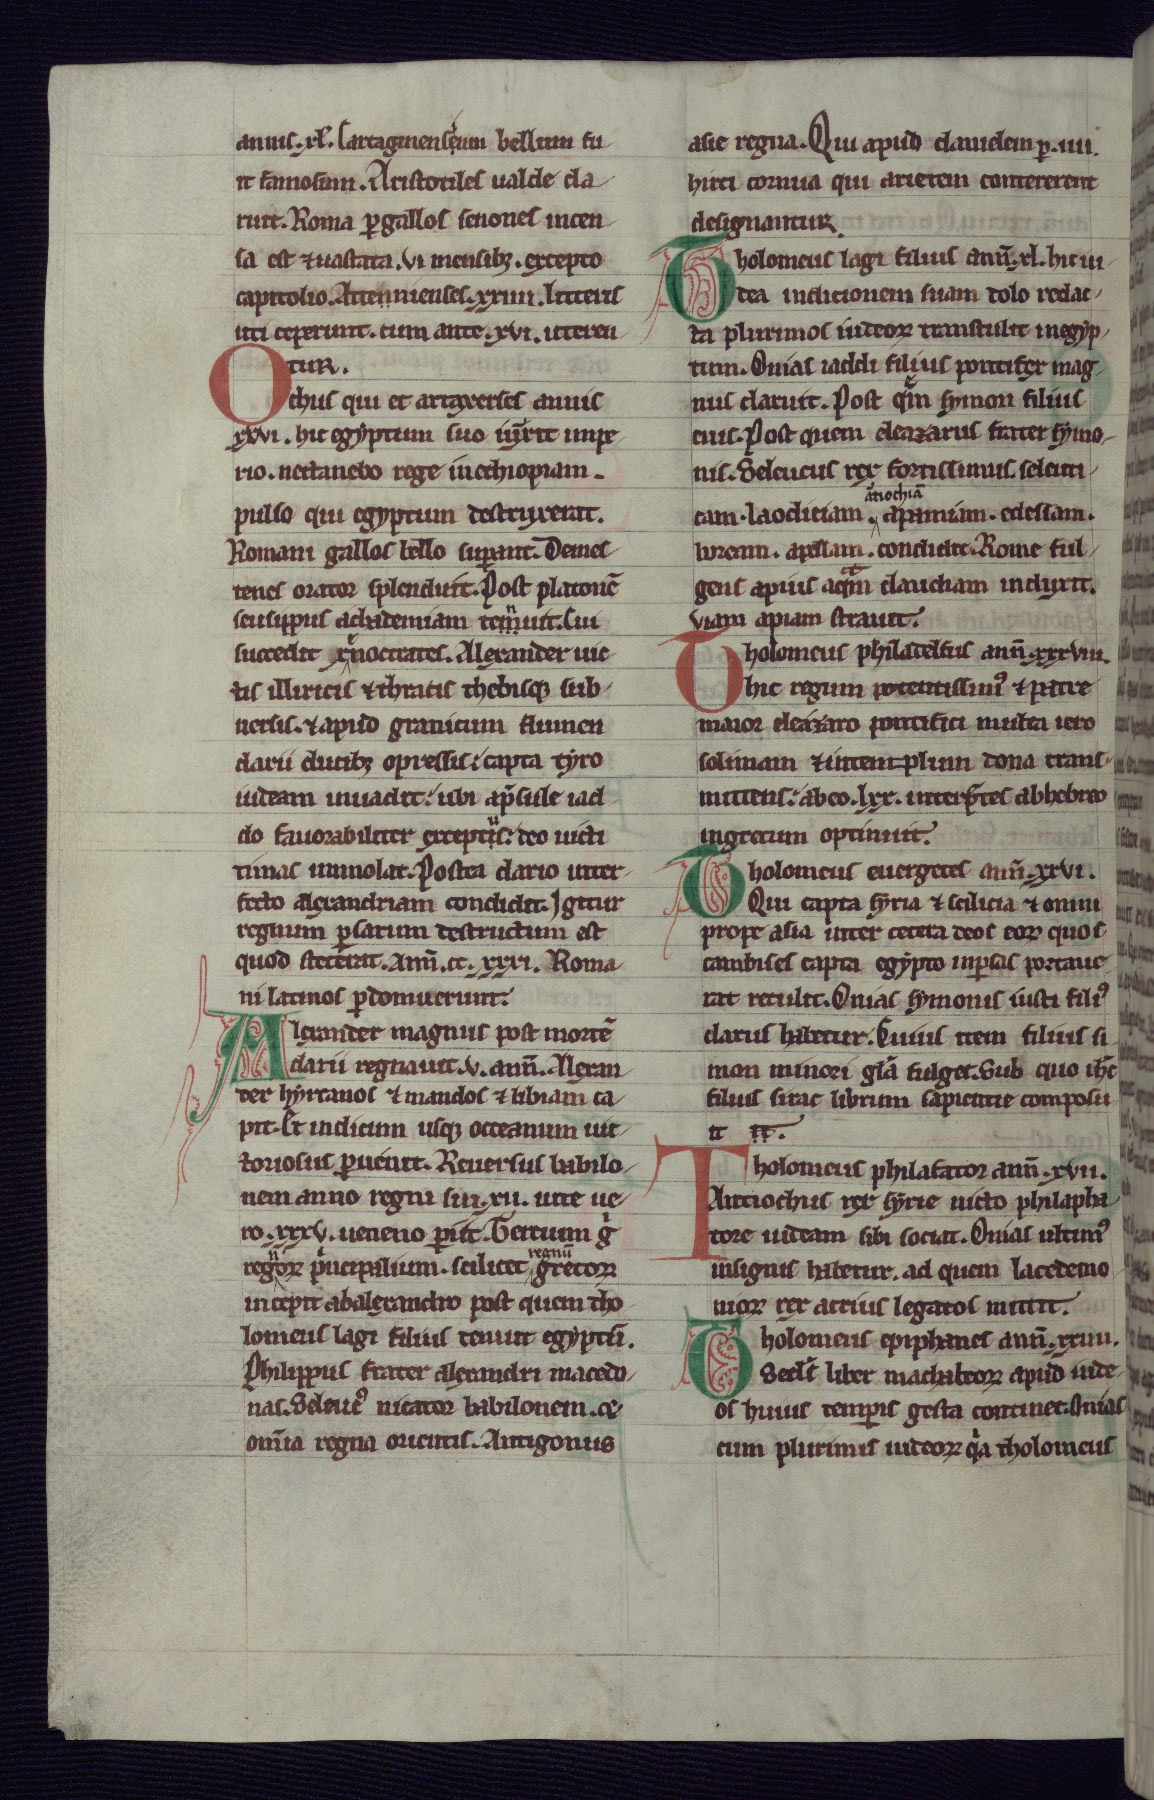 annis .xl. Cartaginensium bellum fu
it famosum. Aristotiles ualde cla
ruit. Roma p gallos senones incen
sa est ⁊ uastata .vi mensibȝ. excepto
capitolio. Attenienses .xxiiii. litteris
uti ceperunt. cum ante .xvi. uteren
tur.
Ochus qui et artaxerses annis
xxvi. hic egyptum suo iũxit impe
rio. nectanebo rege in ethiopiam
pulso qui egyptum destruxerat.
Romani gallos bello supant. Demes
tenes orator splenduit. Post platonē
seusippus achademiam tenuit. Cui
succedit xenocrates. Alexander uic
tis illiricis ⁊ thracis thebisqȝ sub
uersis. ⁊ apud granicum flumen
darii ducibȝ opressis: capta tyro
iudeam inuadit: ubi a p̄sule iad
do fauorabiliter exceptus: deo uicti
timas immolat. Postea dario inter
fecto alexandriam condidit. Igitur
regnum psarum destructum est
quod steterat. Ann̄. cc. xxxi. Roma
ni latinos pdomuerunt.
Alexander magnus post mortē
darii regnauit .v. ann̄. Alexan
der hyrcanos ⁊ mandos ⁊ libiam ca
pit. Et indicum usqȝ occeanum uic
toriosus puenit. Reuersus babilo
nem anno regni sui .xii. uite ue
ro .xxxv. ueneno piit. Tertium g̍
regnoꝝ p̍ncipalium. scilicet regnū grecoꝝ
incepit ab alexandro post quem tho
lomeus lagi filius tenuit egyptū.
Philippus frater alexandri macedo
nas. Seleucꝰ nicator babilonem. et
omīa regna orientis. Antigonus
asie regna. Qui apud danielem p .iiii.
hirci cornua qui arietem contererent
designantur.
Tholomeus lagi filius ann̄ .xl. hic iu
dea in dicionem suam dolo redac
ta plurimos iudeoꝝ transtulit in egyp
tum. Onias iaddi filius pontifex mag
nus claruit. Post quem symon filius
eius. Post quem eleazarus frater symo
nis. Seleucus rex fortissimus seleuci
cam. laodiciam. ātiochiā apamiam. edessam.
boream. apellam. condidit. Rome ful
gens apius aqm claudiam induxit.
viam apiam strauit.
Tholomeus philadelfus ann̄ .xxxviii.
hic regum potentissimꝰ ⁊ patre
maior eleazaro pontifici multa iero
solimam ⁊ in templum dona trans
mittens: ab eo .lxx. interp̄tes ab hebreo
in grecum optinuit.
Tholomeus euergetes ann̄ .xxvi.
Qui capta syria ⁊ scilicia ⁊ omni
prope asia inter cetera deos eoꝝ quos
cambises capta egypto in psas portaue
rat retulit. Onias symonis iusti filiꝰ
clarus habetur. Cuius item filius si
mon minori glā fulget. Sub quo ihc̄
filius sirac librum sapientie composu
it
Tholomeus philafator ann̄ .xvii.
Antiochus rex syrie uicto philapha
tore iudeam sibi sociat. Onias ultimꝰ
insignis habetur. ad quem lacedemo
nioꝝ rex arrius legatos mittit.
Tholomeus epiphanes ann̄ .xxiiii.
Secd̄s liber machabeoꝝ apud iude
os huius temporis gesta continet. Onias
cum plurimis iudeoꝝ qa tholomeus